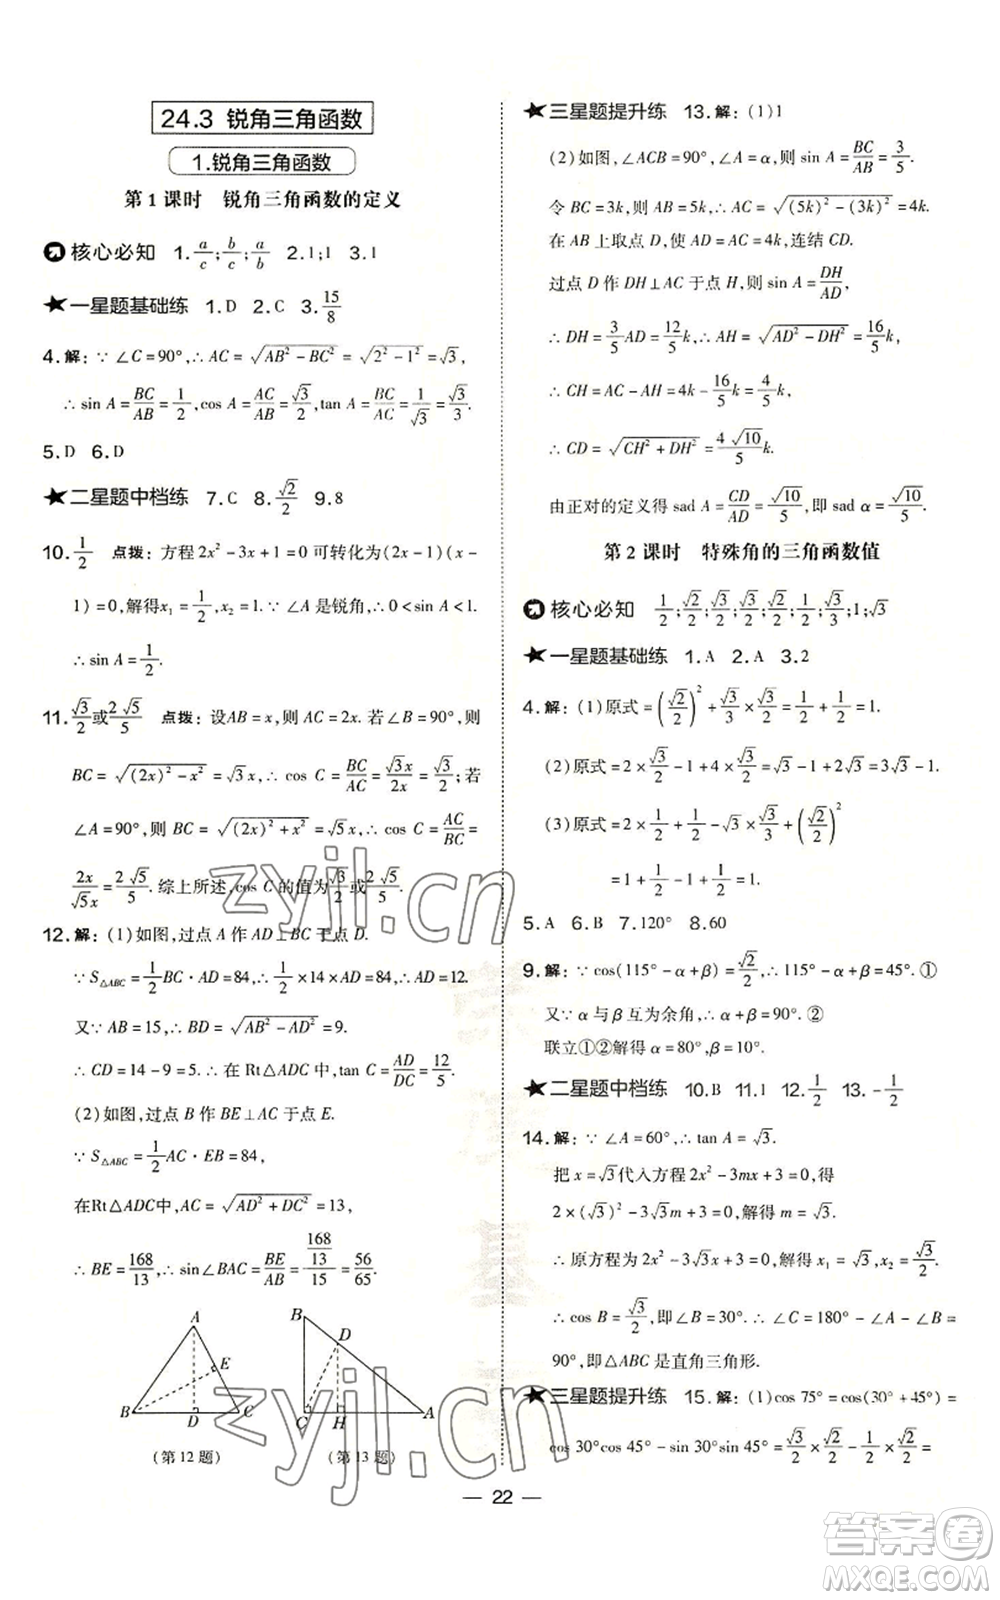 24.3 锐角三角函数
1.锐角三角函数
第1课时 锐角三角函数的定义
核心必知 1. a/c; b/c; a/b 2.1;1 3.1
★一星题基础练 1.D 2.C 3. 15/8
4.解:∵∠C=90°,∴AC=√(AB²-BC²)=√(2²-1²)=√3,
∴sin A=BC/AB=1/2,cos A=AC/AB=√3/2,tan A=BC/AC=1/√3=√3/3.
5.D 6.D
★二星题中档练 7.C 8. √2/2 9.8
10. 1/2 点拨:方程2x²-3x+1=0可转化为(2x-1)(x-
1)=0,解得x₁=1/2,x₂=1.∵∠A是锐角,∴0<sin A<1.
∴sin A=1/2.
11. √3/2或2√5/5 点拨:设AB=x,则AC=2x.若∠B=90°,则
BC=√((2x)²-x²)=√3x,∴cos C=BC/AC=√3x/2x=√3/2;若
∠A=90°,则BC=√((2x)²+x²)=√5x,∴cos C=AC/BC=
2x/√5x=2√5/5.综上所述,cos C的值为√3/2或2√5/5.
12.解:(1)如图,过点A作AD⊥BC于点D.
∵S△ABC=1/2BC·AD=84,∴1/2×14×AD=84,∴AD=12.
又∵AB=15,∴BD=√(AB²-AD²)=9.
∴CD=14-9=5.∴在Rt△ADC中,tan C=AD/DC=12/5.
(2)如图,过点B作BE⊥AC于点E.
∵S△ABC=1/2AC·EB=84,
在Rt△ADC中,AC=√(AD²+DC²)=13,
∴BE=168/13,∴sin∠BAC=BE/AB=(168/13)/15=56/65.
A
E
B
D
C
(第12题)
B
D
C
H
A
(第13题)
★三星题提升练 13.解:(1)1
(2)如图,∠ACB=90°,∠A=α,则sin A=BC/AB=3/5.
令BC=3k,则AB=5k,∴AC=√((5k)²-(3k)²)=4k.
在AB上取点D,使AD=AC=4k,连结CD.
过点D作DH⊥AC于点H,则sin A=DH/AD,
∴DH=3/5AD=12/5k,∴AH=√(AD²-DH²)=16/5k,
∴CH=AC-AH=4k-16/5k=4/5k,
∴CD=√(CH²+DH²)=4√10/5k.
由正对的定义得sad A=CD/AD=√10/5,即sad α=√10/5.
第2课时 特殊角的三角函数值
核心必知 1/2; √2/2; √3/2; √3/2; √2/2; 1/2; √3/3; 1; √3
★一星题基础练 1.A 2.A 3.2
4.解:(1)原式=(√2/2)²+√3/2×√3/3=1/2+1/2=1.
(2)原式=2×√3/2-1+4×√3/2=√3-1+2√3=3√3-1.
(3)原式=2×1/2+1/2-√3×√3/3+(√2/2)²
=1+1/2-1+1/2=1.
5.A 6.B 7.120° 8.60
9.解:∵cos(115°-α+β)=√2/2,∴115°-α+β=45°.①
又∵α与β互为余角,∴α+β=90°.②
联立①②解得α=80°,β=10°.
★二星题中档练 10.B 11.1 12. 1/2 13. -1/2
14.解:∵∠A=60°,∴tan A=√3.
把x=√3代入方程2x²-3mx+3=0,得
2×(√3)²-3√3m+3=0,解得m=√3.
∴原方程为2x²-3√3x+3=0,解得x₁=√3,x₂=√3/2.
∴cos B=√3/2,即∠B=30°.∴∠C=180°-∠A-∠B=
90°,即△ABC是直角三角形.
★三星题提升练 15.解:(1)cos 75°=cos(30°+45°)=
cos 30°cos 45°-sin 30°sin 45°=√3/2×√2/2-1/2×√2/2=
— 22 —
zyjl.cn
zyjl.cn
答案圈
MXQE.COM